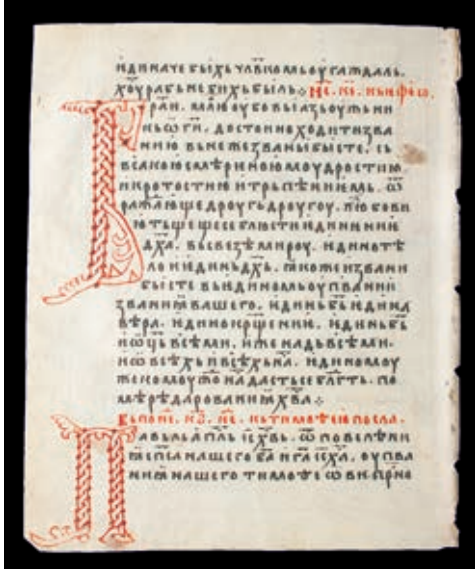 ѥдиначе быхь чл҃вкомь оуга҆ждаль.
хоу҃ рабь не бихь быль⁘ Не҃. к҃ѳ. кь ѥфесѡ.
Бран. молю оубо вы азь оужьни
кь ѡ г҃и. достоино ходити зва
нию вьнеже звани бысте. сь
всакою смѣриною моудростию.
и кротостию и трьпѣниемь.
дроугь дроугоу. любови
тьщеще се блюсти ѥдинение
дх҃а. вь свезѣ мироу. ѥдино тѣ
ло и ѥдинь дх҃ь. ꙗкоже и звани
бысте вь ѥдиномь оупвании
званиꙗ вашего. ѥдинь г҃ь ѥдина
вѣра. ѥдино кр҃щение. ѥдинь б҃ь
и ѡц҃ь всѣмь. иже надь всѣми.
и ѡ всѣхь и вь всѣхь на. ѥдиномоу
же комоуждо на дасть се бл҃гть. по
мѣрѣ дарованиꙗ х҃ва⁘
кь тимоѳею посла.
Павьль ап҃ль іс҃ х҃вь. по повелѣни
сп҃са нашего б҃а и г҃а іс҃ х҃а. оупва
ниꙗ нашего тимоѳе